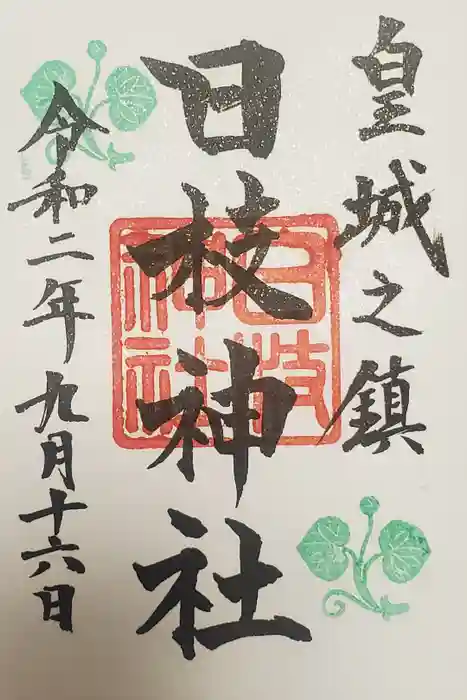 皇城之鎮
日枝神社
令和二年九月十六日
日枝
神社